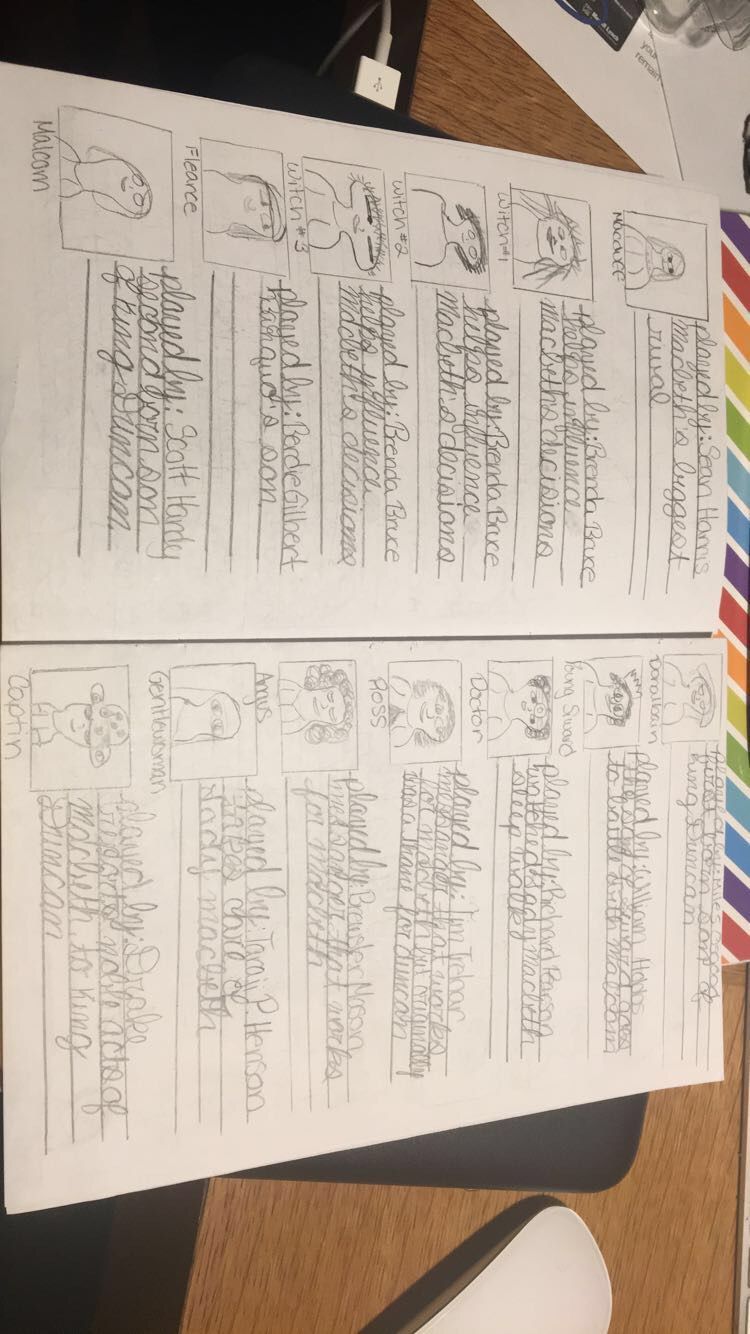 Macduff
played by: Sean Harris
macbeth's biggest
rival
Witch #1
played by: Brenda Bruce
helps influence
macbeth's decisions
Witch #2
played by: Brenda Bruce
helps influence
macbeth's decisions
Witch #3
played by: Brenda Bruce
helps influence
macbeth's decisions
Fleance
played by:
son
Malcom
played by: Scott Handy
second born son
of King Duncan
first born son of
King Duncan
Young Siward
played by: William
the son of Siward goes
to battle with malcom
Doctor
played by: Richard Pearson
watched Lady Macbeth
sleep walk
Ross
played by: Tim
that works
for macbeth but originally
was a thane for Duncan
Angus
played by: Brewster Mason
that works
for macbeth
Gentlewoman
played by: Taraji P. Henson
takes care of
lady macbeth
Captin
played by: Drake
reports noble acts of
macbeth to King
Duncan
your
remain